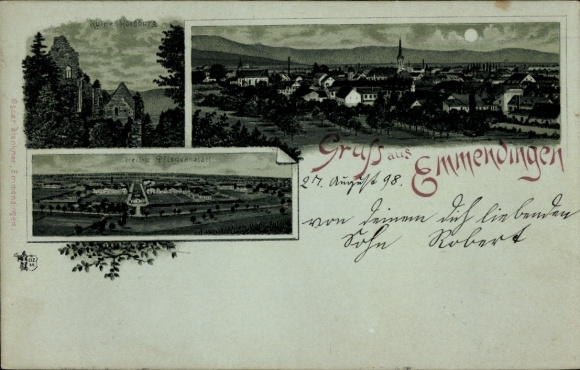 Ruine Hochburg
Heil- u. Pflegeanstalt
Gruß aus Emmendingen
27. August 98.
von deinem dich liebenden
Sohn Robert
Emmendingen